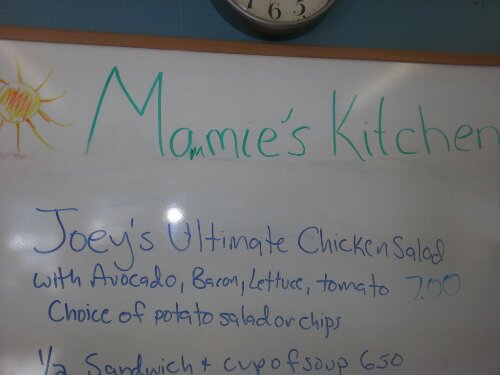 7 6 5
Mammie's Kitchen
Joey's Ultimate Chicken Salad
with Avocado, Bacon, Lettuce, tomato 7.00
Choice of potato salad or chips
1/2 Sandwich + cup of soup 6.50